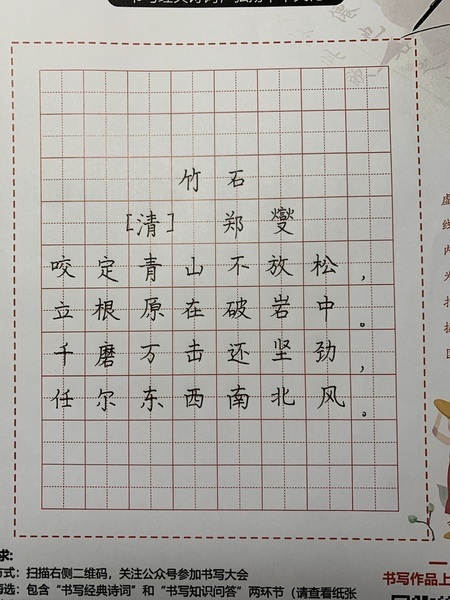 竹石
[清] 郑燮
咬定青山不放松,
立根原在破岩中。
千磨万击还坚劲,
任尔东西南北风。
虚
线
内
为
求:
方式:扫描右侧二维码,关注公众号参加书写大会
海选:包含“书写经典诗词”和“书写知识问答”两环节(请查看纸张
书写作品上